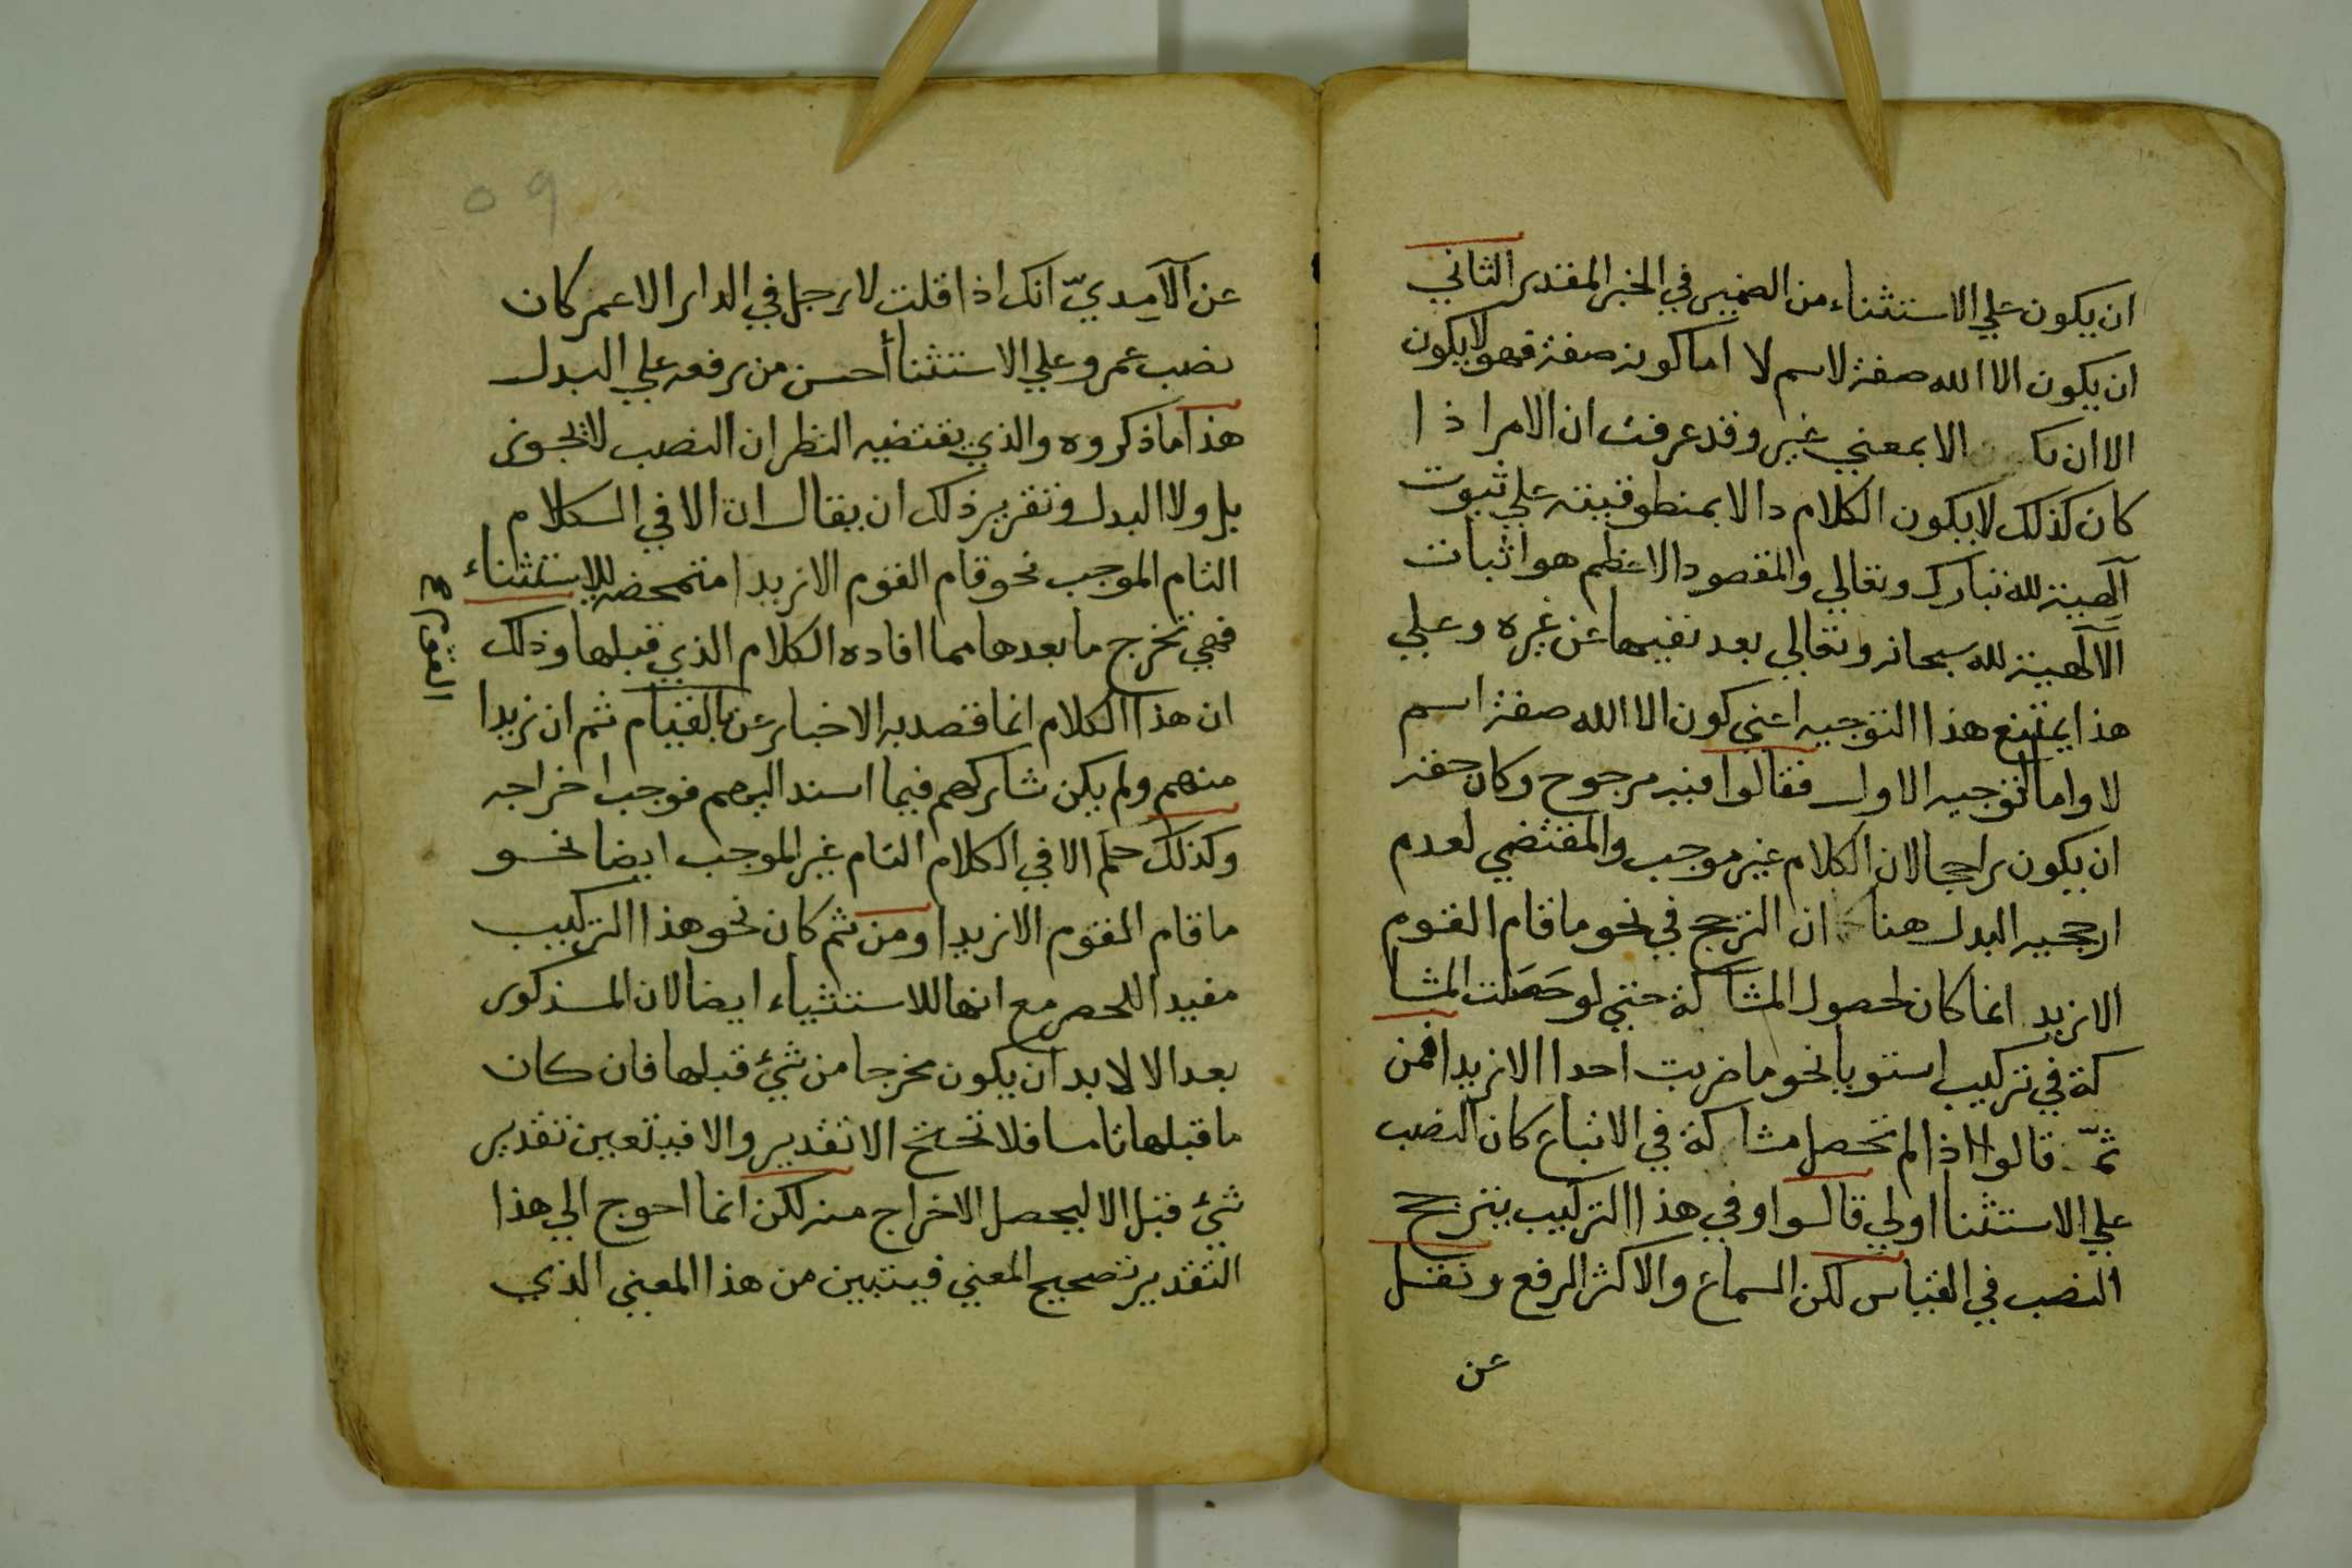 ان يكون علي الاستثناء من الضمير في الخبر المقدر الثاني
ان يكون الا الله صفة لاسم لا اما كونه صفة فهو لا يكون
الا ان الا بمعني غير وقد عرفت ان الامر اذا
كان كذلك لا يكون الكلام دالا بمنطوقيته علي ثبوت
آلهية لله تبارك وتعالي والمقصود الاعظم هو اثبات
الآلهية لله سبحانه وتعالي بعد نفيها عن غيره وعلي
هذا يمتنع هذا التوجيه اعني كون الا الله صفة اسم
لا واما التوجيه الاول فقالوا فيه مرجوح وكان حقه
ان يكون راجحا لان الكلام غير موجب والمقتضي لعدم
ارجحيه البدل هنا ان الترجح في نحو ما قام القوم
الا زيد انما كان لحصول المشاكة حتي لو حصلت المشا
كة في تركيب استويا نحو ما ضربت احدا الا زيدا فمن
ثمّ قالوا اذا لم تحصل مشاكة في الاتباع كان النصب
علي الاستثنا اولي قالوا وفي هذا التركيب يترجح
النصب في القياس لكن السماع والاكثر الرفع ونقل
عن
٥٩
عن الآمِديّ انك اذا قلت لا رجل في الدار الا عمر كان
نصب عمرو علي الاستثنا أحسن من رفعه علي البدل
هذا ما ذكروه والذي يقتضيه النظر ان النصب لا يجوز
بل ولا البدل وتقرير ذلك ان يقال ان الا في الكلام
التام الموجب نحو قام القوم الا زيدا متمحضه للاستثناء
فهي تخرج ما بعدها مما افاده الكلام الذي قبلها وذلك
ان هذا الكلام انما قصد به الاخبار عن بالقيام ثم ان زيدا
القوم ع
منهم ولم يكن شاركهم فيما اسند اليهم فوجب اخراجه
وكذلك حكم الا في الكلام التام غير الموجب ايضا نحو
ما قام القوم الا زيدا ومن ثم كان نحو هذا التركيب
مفيدا للحصر مع انها للاستثياء ايضا لان المذكور
بعد الا لا بد ان يكون مخرجا من شئ قبلها فان كان
ما قبلها تاما فلا تحتج الا تقدير والا فيتعين تقدير
شئ قبل الا ليحصل الاخراج منه لكن انما احوج الي هذا
التقدير تصحيح المعني فيتبين من هذا المعني الذي